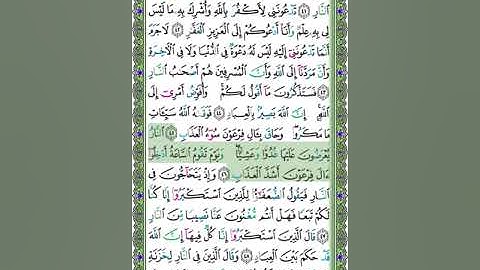 ٱلنَّارِ ٤١ تَدْعُونَنِي لِأَكْفُرَ بِٱللَّهِ وَأُشْرِكَ بِهِۦ مَا لَيْسَ
لِي بِهِۦ عِلْمٌ وَأَنَا۠ أَدْعُوكُمْ إِلَى ٱلْعَزِيزِ ٱلْغَفَّٰرِ ٤٢ لَا جَرَمَ
أَنَّمَا تَدْعُونَنِيٓ إِلَيْهِ لَيْسَ لَهُۥ دَعْوَةٌ فِي ٱلدُّنْيَا وَلَا فِي ٱلْءَاخِرَةِ
وَأَنَّ مَرَدَّنَآ إِلَى ٱللَّهِ وَأَنَّ ٱلْمُسْرِفِينَ هُمْ أَصْحَٰبُ ٱلنَّارِ
٤٣ فَسَتَذْكُرُونَ مَآ أَقُولُ لَكُمْ ۚ وَأُفَوِّضُ أَمْرِيٓ إِلَى
ٱللَّهِ ۚ إِنَّ ٱللَّهَ بَصِيرٌۢ بِٱلْعِبَادِ ٤٤ فَوَقَىٰهُ ٱللَّهُ سَيِّـَٔاتِ
مَا مَكَرُوا۟ ۖ وَحَاقَ بِـَٔالِ فِرْعَوْنَ سُوٓءُ ٱلْعَذَابِ ٤٥ ٱلنَّارُ
يُعْرَضُونَ عَلَيْهَا غُدُوًّا وَعَشِيًّا ۖ وَيَوْمَ تَقُومُ ٱلسَّاعَةُ أَدْخِلُوٓا۟
ءَالَ فِرْعَوْنَ أَشَدَّ ٱلْعَذَابِ ٤٦ وَإِذْ يَتَحَآجُّونَ فِي
ٱلنَّارِ فَيَقُولُ ٱلضُّعَفَٰٓؤُا۟ لِلَّذِينَ ٱسْتَكْبَرُوٓا۟ إِنَّا كُنَّا
لَكُمْ تَبَعًا فَهَلْ أَنتُم مُّغْنُونَ عَنَّا نَصِيبًا مِّنَ ٱلنَّارِ
٤٧ قَالَ ٱلَّذِينَ ٱسْتَكْبَرُوٓا۟ إِنَّا كُلٌّ فِيهَآ إِنَّ ٱللَّهَ
قَدْ حَكَمَ بَيْنَ ٱلْعِبَادِ ٤٨ وَقَالَ ٱلَّذِينَ فِي ٱلنَّارِ لِخَزَنَةِ